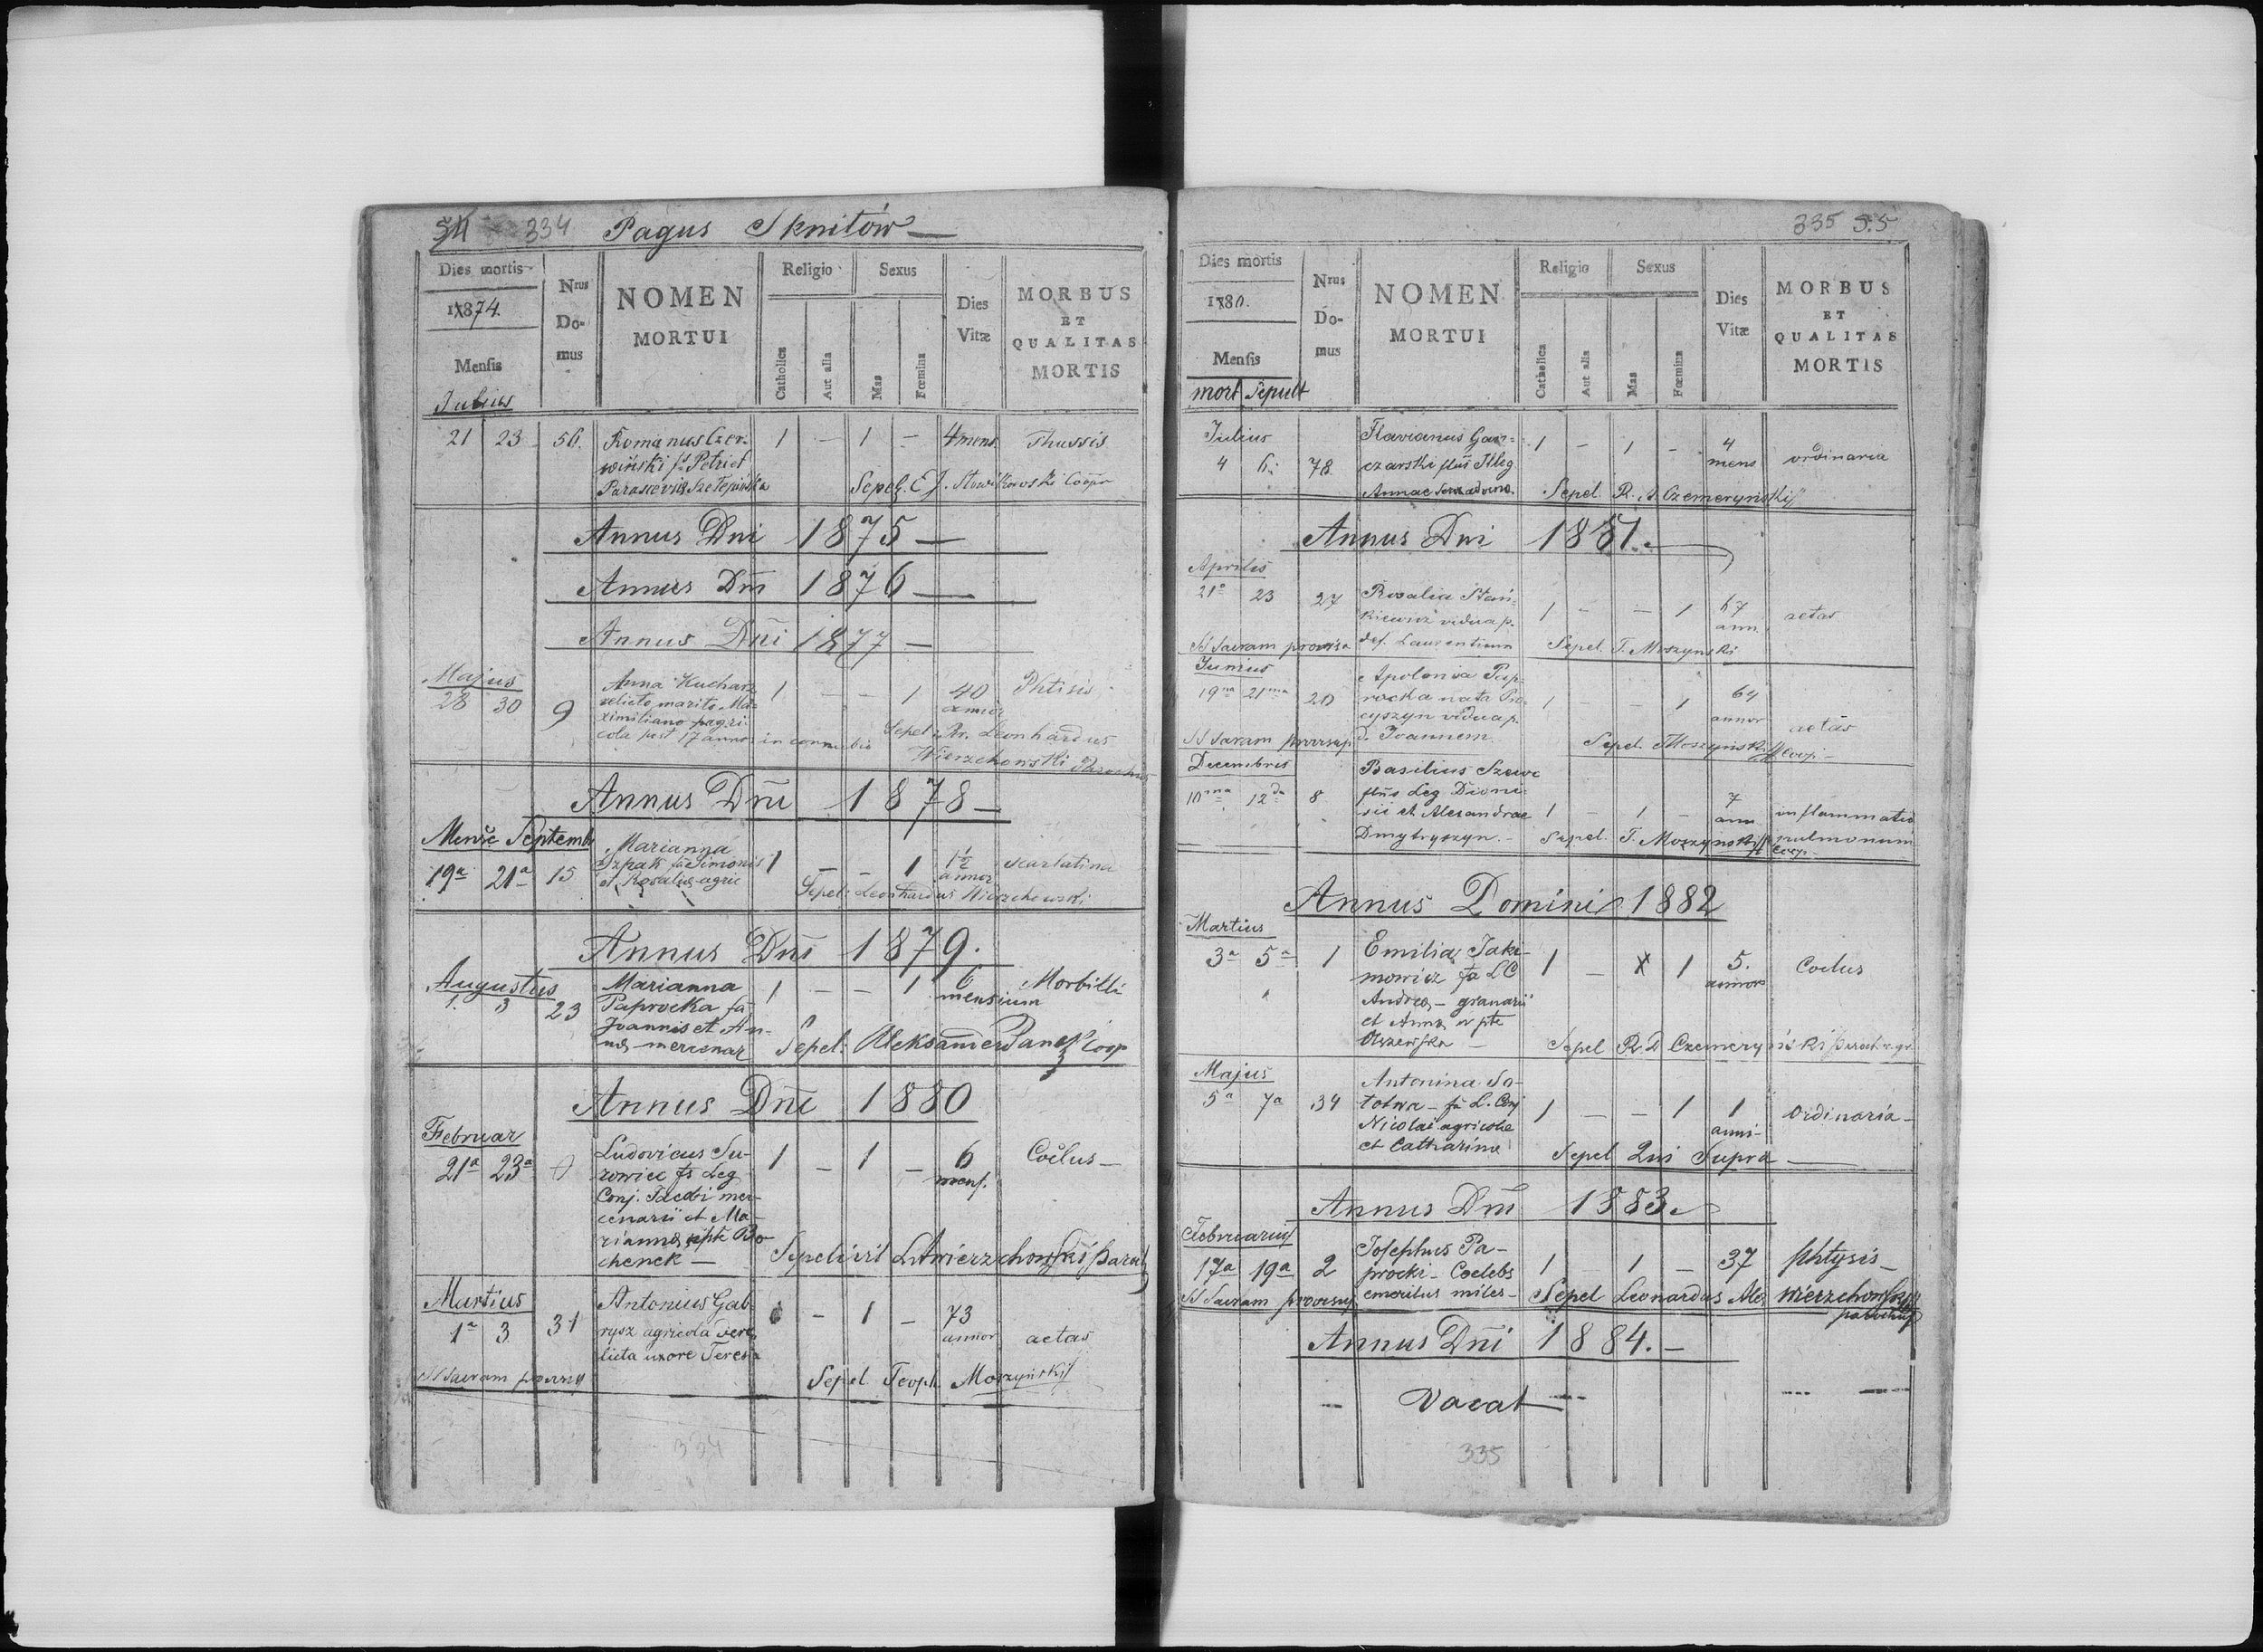 34 334 Pagus Sknitów
Dies mortis
1874.
Mensis
Julius
Nrus Domus
NOMEN MORTUI
Religio
Catholica
Aut alia
Sexus
Mas
Fœmina
Dies Vitæ
MORBUS ET QUALITAS MORTIS
21 23 56. Romanus Czer- 1 – 1 – 4 mens Thussis
wiński fs Petri et
Parascevia Szetepińska Sepel. Słowikowski Coopr
Annus Dni 1875
Annus Dni 1876
Annus Dni 1877
Majus
28 30 9 Anna Kucharz 1 – – 1 40 annor Phtisis
relicto marito Ma-
ximiliano pagri-
cola post 17 annos in connubio Sepel. Pr. Leonhardus
Wierzchowski Parochus
Annus Dni 1878
Mense Septemb
19a 21a 15 Marianna 1 – – 1 1½ annor scarlatina
Szpak fa Simonis
et Rosaliæ agric Sepel: Leonhardus Wierzchowski
Annus Dni 1879.
Augustus
1. 3 23 Marianna 1 – – 1 6 mensium Morbilli
Paprocka fa
Joannis et An-
næ mercenar Sepel: Aleksander Coop
Annus Dni 1880
Februar
21a 23a Ludovicus Su- 1 – 1 – 6 mens. Coëlus
rowiec fs Leg
Conj. Jacobi mer-
cenarii et Ma-
riannæ Bo-
chenek Sepelivit LAWierzchowski paroch
Martius
1a 3 31 Antonius Gab- – 1 – 73 annor aetas
rysz agricola dere-
licta uxore Teresia
SS Sacram provisus Sepel Teoph Moszyński
334
335 55
Dies mortis
1880.
Mensis
mort Sepult
Nrus Domus
NOMEN MORTUI
Religio
Catholica
Aut alia
Sexus
Mas
Fœmina
Dies Vitæ
MORBUS ET QUALITAS MORTIS
Julius
4 6. 78 Flavianus Gan- 1 – 1 – 4 mens ordinaria
czarski flius Illeg
Annae Sepel. R. A. Czemeryński
Annus Dni 1881.
Aprilis
21a 23 27 Rosalia Stan- 1 – – 1 67 ann. aetas
kiewicz vidua p.
def. Laurentium Sepel. T. Moszyński
SS Sacram provisa
Junius
19na 21ma 20 Apolonia Pap- 1 – – 1 64 annor aetas
rocka nata Pro-
cyszyn vidua p.
d. Joannem Sepel. TMoszyński Coop
SS Saram
Decembris
10ma 12da 8 Basilius Szewc 1 – 1 – 7 ann inflammatio
flius Leg Dioni-
sii et Alexandrae
Dmytryszyn Sepel. T. Moszyński Coop pulmonum
Annus Domini 1882
Martius
3a 5a 1 Emilia Jaki- 1 – X 1 5. annor Coelus
mowicz fa LC
Andreæ – granarii
et Annæ
Olszewska Sepel R. D Czemeryński
Majus
5a 7a 34 Antonina So- 1 – – 1 1 anni Ordinaria
łotwa fa L. Conj
Nicolai agricolae
et Catharina Sepel Qui Supra
Annus Dni 1883.
Februarius
17a 19a 2 Josephus Pa- 1 – 1 – 37 phtysis
procki Coelebs
emeritus miles Sepel Leonardus Wierzchowski
SS Sacram provisus parochus
Annus Dni 1884.
Vacat
335